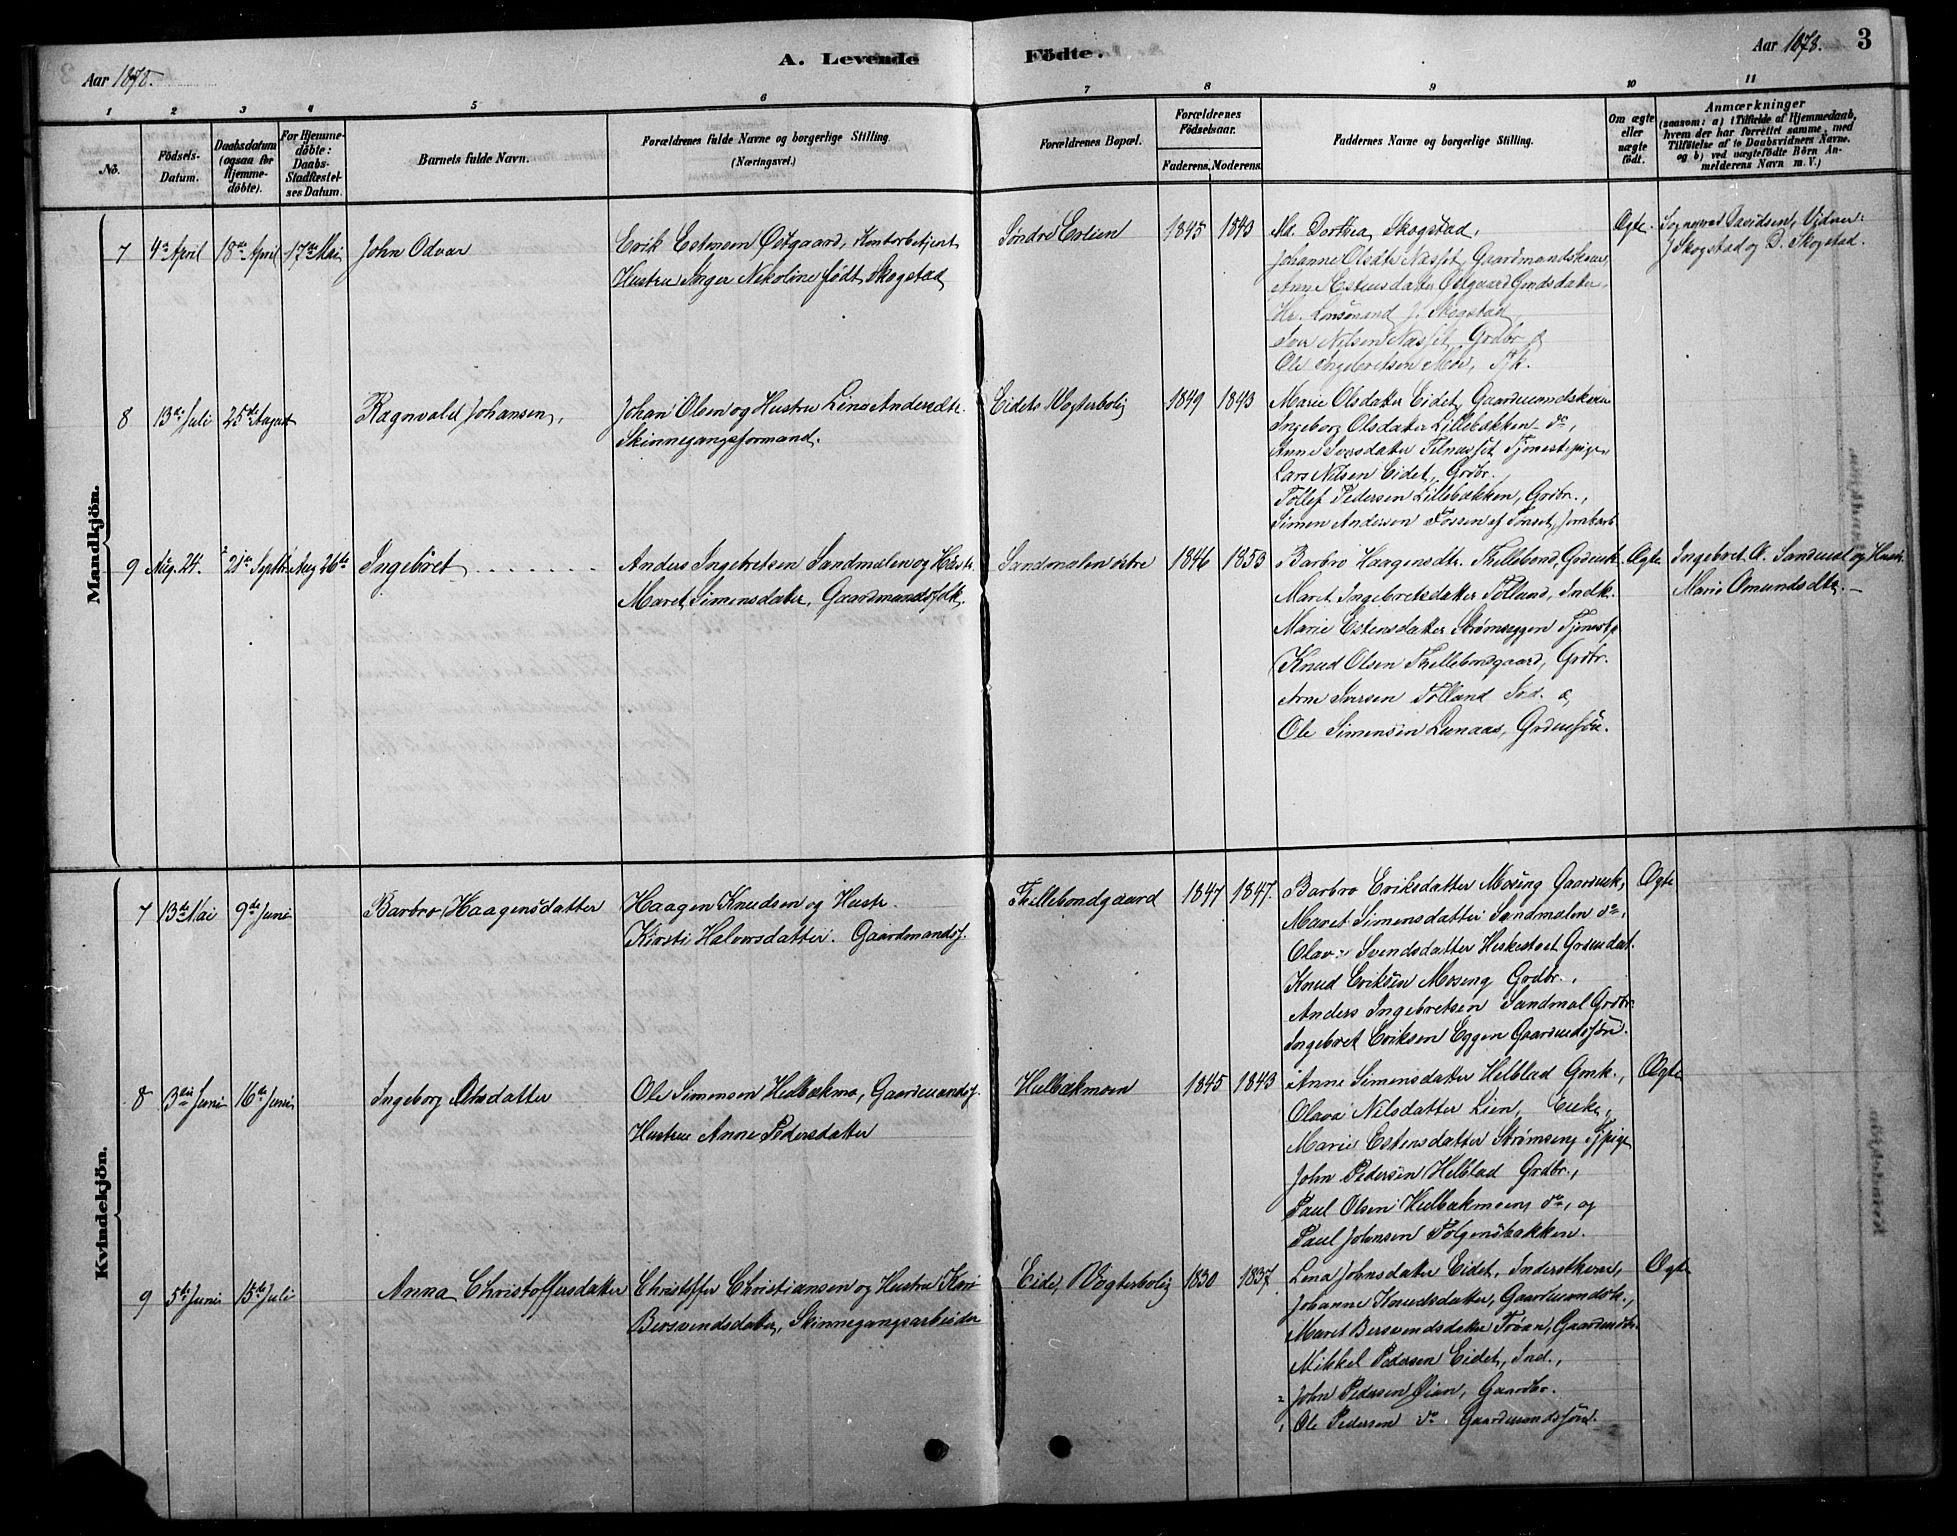 Aar 1878.
A. Levende
Födte.
Aar 1878.
3
1
2
3
4
5
6
7
8
9
10
11
No.
Födsels-
Datum.
Daabsdatum
(ogsaa for
Hjemme-
döbte).
For Hjemme-
döbte:
Daabs-
Stadfæstel-
ses Datum.
Barnets fulde Navn.
Forældrenes fulde Navne og borgerlige Stilling.
(Næringsvei.)
Forældrenes Bopæl.
Forældrenes
Födselsaar.
Faderens.
Moderens.
Faddernes Navne og borgerlige Stilling.
Om ægte
eller
uægte
födt.
Anmærkninger
(saasom: a) i Tilfælde af Hjemmedaab,
hvem der har forrettet samme, med
Tilföielse af to Daabsvidners Navne.
og b) ved uægtefödte Börn An-
melderens Navn m. V.)
Mandkjön.
7
4de April
18de April
17de Mai
John Odvar
Erik Estensen Østgaard, Kontorbetjent
Hustru Inger Nikoline født Skogstad
Søndre Erlien
1845
1843
Md. Dorthea Skogstad,
Johanne Olsdtr Næsset, Gaardmandskone,
Anne Estensdatter Østgaard Gmdsdatter,
Hr. J. Skogstad,
Iver Nilsen Næsset, Grdbr &
Ole Ingebretsen Moe,
Ægte.
Sogneprest Davidsen, Vidner:
J Skogstad og D. Skogstad.
8
13de Juli
25de August
Ragnvald Johansen,
Johan Olsen og Hustru Line Andersdtr.
Skinnegangsformand.
Eidets Vogterbolig
1849
1843
Marie Olsdatter Eidet, Gaardmandskone
Ingeborg Olsdatter Lillebækken do,
Anne Iversdatter Telnesset Tjenestepige,
Lars Nilsen Eidet, Grdbr.
Tollef Pedersen Lillebækken, Grdbr.,
Simen Andersen Fossen af Tønset,
9
Aug. 24.
21de Septbr
Aug 26de
Ingebret
Anders Ingebretsen Sandmælen og Hustr.
Maret Simensdatter, Gaardmandsfolk.
Sandmælen østre
1846
1853
Barbro Haagensdtr. Thellebond, Grdmsk.
Maret Ingebretsdatter Tolland, Indk.
Marie Estensdatter Strømseggen Tjenestp
Knud Olsen Thellebondgaard, Grdbr.
Arne Iversen Tolland Ind. &
Ole Simensen Lunaas, Grdmssøn.
Ægte.
Ingebret A. Sandmæl og Hustr.
Marie Amundsdtr. —
Kvindekjön.
7
13de Mai
9de Juni
Barbro Haagensdatter
Haagen Knudsen og Hustr.
Kirsti Halvorsdatter. Gaardmandsf.
Thellebondgaard
1847
1847.
Barbro Eriksdatter Mosing Gaardmk,
Maret Simensdatter Sandmælen do,
Olava Svendsdatter Grdmdat.
Knud Eriksen Moseng Grdbr.,
Anders Ingebretsen Sandmæl Grdbr.
Ingebret Eriksen Eggen Gaardmdssøn.
Ægte
8
3die Juni
16de Juni
Ingeborg Olsdatter
Ole Simensen Hulbækmo, Gaardmandsf.
Hustru Anne Pedersdatter
Hulbækmoen
1845
1843
Anne Simensdatter Helblad Gmk.,
Olava Nilsdatter Lien, Enke,
Marie Estensdatter Strømseng Tjpige
John Pedersen Helblad Grdbr.,
Paul Olsen Hulbækmoen, do, og
Paul Johnsen Tolgensbakken.
Ægte
9
5te Juni
15de Juli
Anna Christoffersdatter
Christoffer Christiansen og Hustru Kari
Bersvendsdatter, Skinnegangsarbeider
Eide, Vogterbolig
1830
1837
Lena Johnsdatter Eidet, Inderstkone,
Johanne Knudsdatter, Gaardmandsk.,
Maret Bersvendsdatter Trøan, Gaardmdsk.
Mikkel Pedersen Eidet, Ind.,
John Pedersen Øien, Gaardbr.
Ole Pedersen do Gaardmandssøn.
Ægte